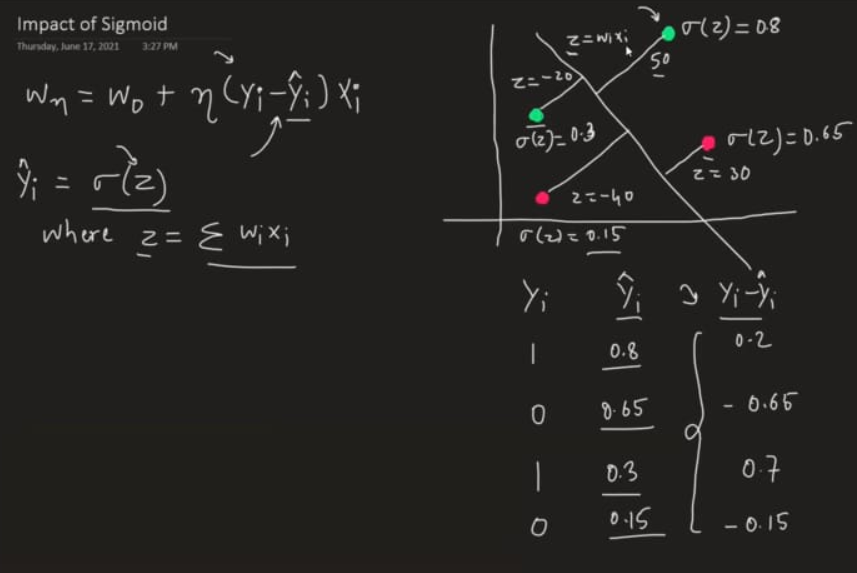 Impact of Sigmoid
Thursday, June 17, 2021 3:27 PM
Wn = Wo + η(yi-ŷi) xi
ŷi = σ(z)
where z = Σ wixi
z = wixi
σ(z) = 0.8
50
z = -20
σ(z) = 0.3
σ(z) = 0.65
z = 30
z = -40
σ(z) = 0.15
yi ŷi yi-ŷi
1 0.8 0.2
0 0.65 - 0.65
1 0.3 0.7
0 0.15 - 0.15